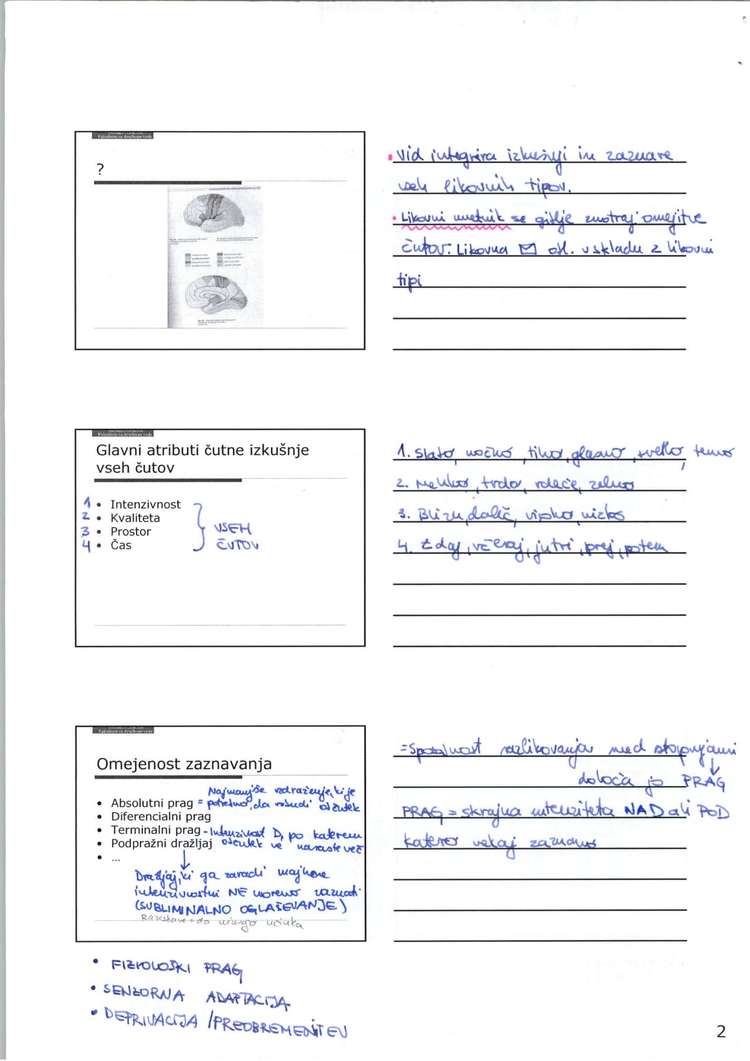 ?
• Vid integrira izkušnji in zaznave
vseh likovnih tipov.
• Likovni umetnik se giblje znotraj omejitve
čutov. Likovna ✉ obl. v skladu z likovni
tipi
Glavni atributi čutne izkušnje
vseh čutov
1 • Intenzivnost
2 • Kvaliteta
3 • Prostor
4 • Čas
VSEH
ČUTOV
1. Slabo, močno, tiho, glasno, svetlo, temno
2. Mehko, trdo, rdeče, zeleno
3. Blizu, daleč, visoko, nizko
4. Zdaj, včeraj, jutri, prej, potem
Omejenost zaznavanja
Najmanjše vzdraženje, ki je
• Absolutni prag = potrebno, da vzbudi občutek
• Diferencialni prag
• Terminalni prag - Intenzivnost D, po katerem
• Podpražni dražljaj občutek ne narašča več
• ...
Dražljaj, ki ga zaradi majhne
intenzivnosti NE moremo zaznati
(SUBLIMINALNO OGLAŠEVANJE)
do učinka
= Sposobnost razlikovanja med stopnjami
določa jo PRAG
PRAG = skrajna intenziteta NAD ali POD
katero nekaj zaznamo
• FIZIOLOŠKI PRAG
• SENZORNA ADAPTACIJA
• DEPRIVACIJA / PREOBREMENITEV
2